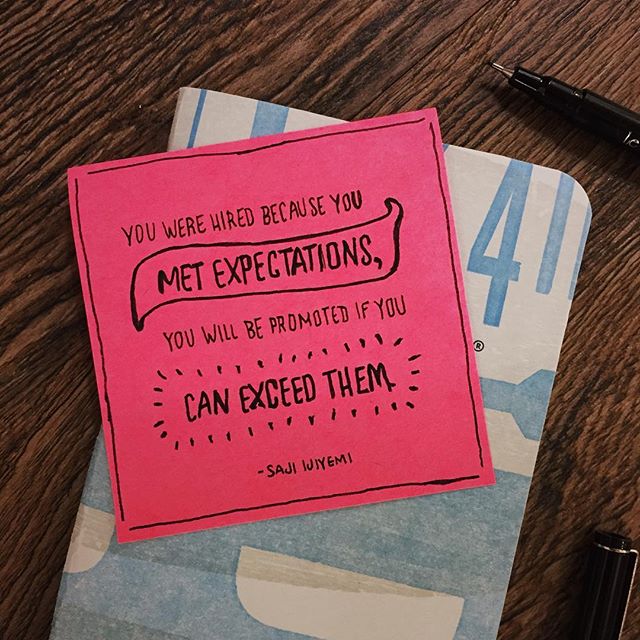 YOU WERE HIRED BECAUSE YOU
MET EXPECTATIONS,
YOU WILL BE PROMOTED IF YOU
CAN EXCEED THEM.
-SAJI IJIYEMI
4
®